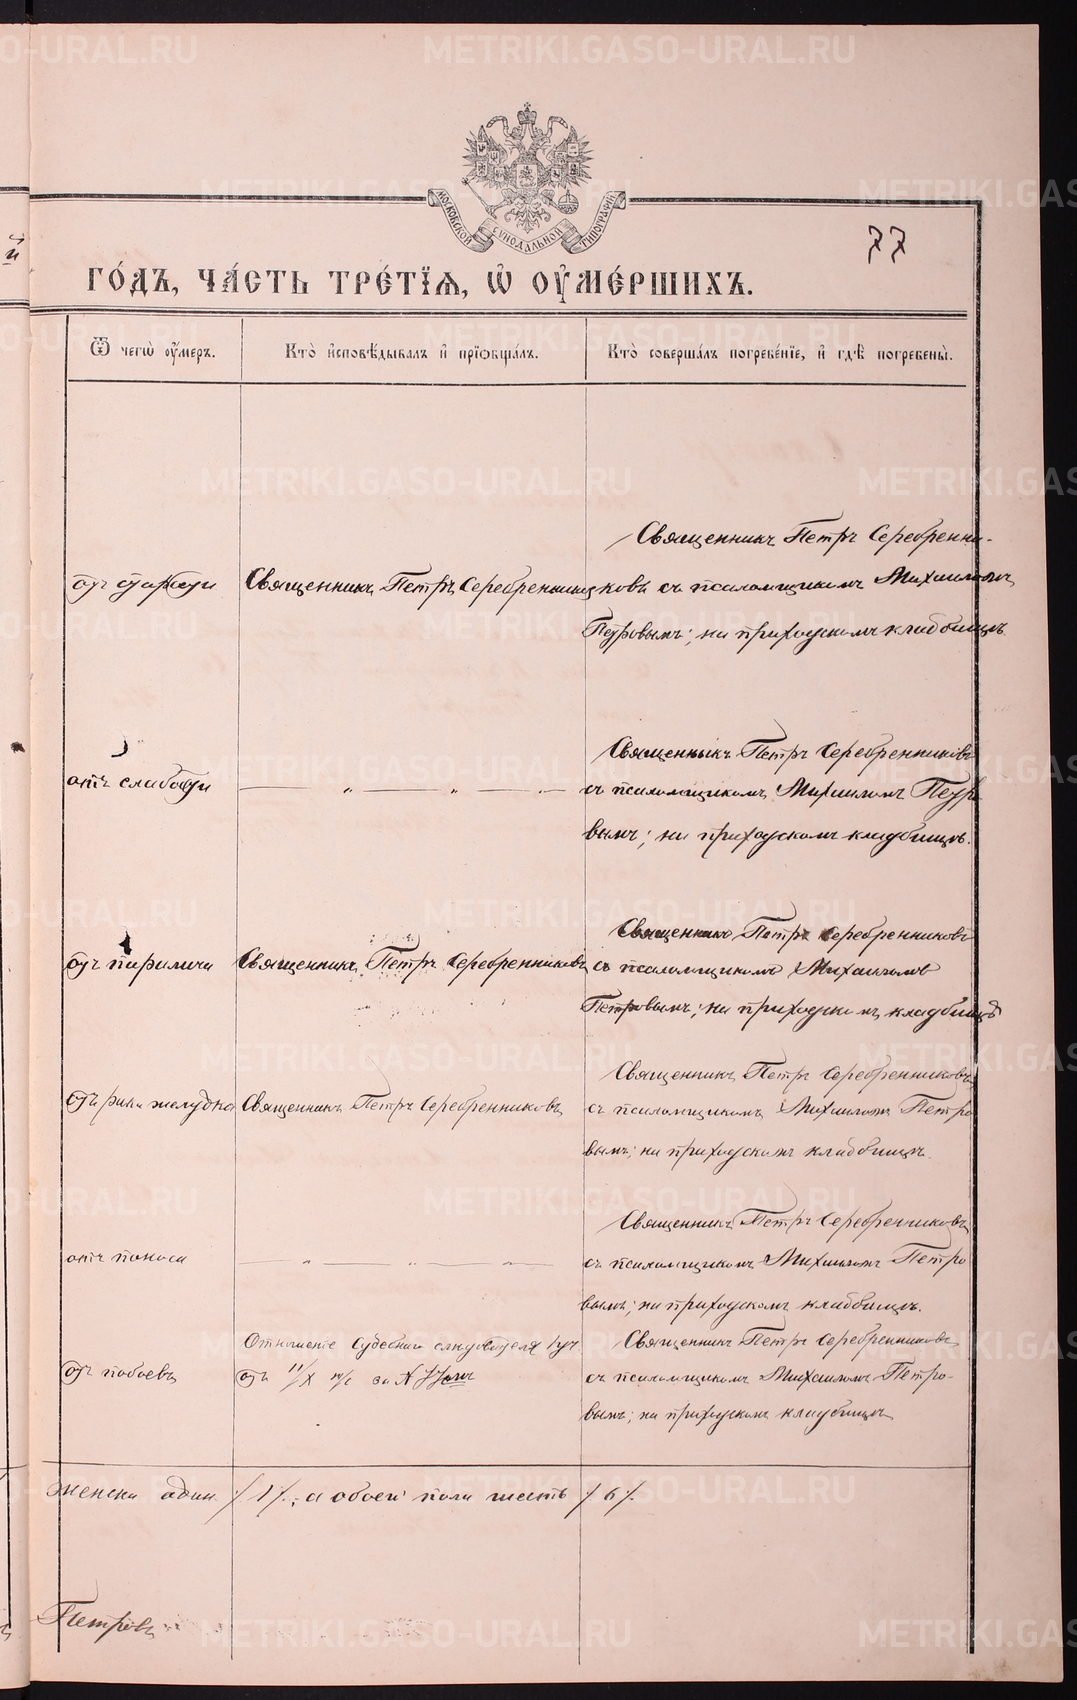 МОСКОВСКОЙ СѴНОДАЛЬНОЙ ТИПОГРАФІИ
77
ГО́ДЪ, ЧА́СТЬ ТРЕ́ТІѦ, Ѡ҆ ОУ҆МЕ́РШИХЪ.
Ѿ чегѡ̀ оу҆́меръ.
Кто̀ и҆сповѣ́дывалъ и҆ прїѡбща́лъ.
Кто̀ соверша́лъ погребе́нїе, и҆ гдѣ̀ погребены̀.
отъ старости
Священникъ Петръ Серебренниковъ
Священникъ Петръ Серебренни-
ковъ съ псаломщикомъ Михаиломъ
Петровымъ; на приходскомъ кладбищѣ
отъ слабости
— " — " — " —
Священникъ Петръ Серебренниковъ
съ псаломщикомъ Михаиломъ Петро
вымъ; на приходскомъ кладбищѣ.
отъ паралича
Священникъ Петръ Серебренниковъ
Священникъ Петръ Серебренниковъ
съ псаломщикомъ Михаиломъ
Петровымъ; на приходскомъ кладбищѣ
отъ рака желудка
Священникъ Петръ Серебренниковъ
Священникъ Петръ Серебренниковъ
съ псаломщикомъ Михаиломъ Петро
вымъ; на приходскомъ кладбищѣ.
отъ поноса
— " — " — " —
Священникъ Петръ Серебренниковъ
съ псаломщикомъ Михаиломъ Петро
вымъ; на приходскомъ кладбищѣ.
отъ побоевъ
Отношеніе Судебнаго слѣдователя 1 уч.
отъ 11/X м/с за №
Священникъ Петръ Серебренниковъ
съ псаломщикомъ Михаиломъ Петро-
вымъ; на приходскомъ кладбищѣ
женска один /1/, а обоего пола шесть /6/.
Петровъ
METRIKI.GASO-URAL.RU